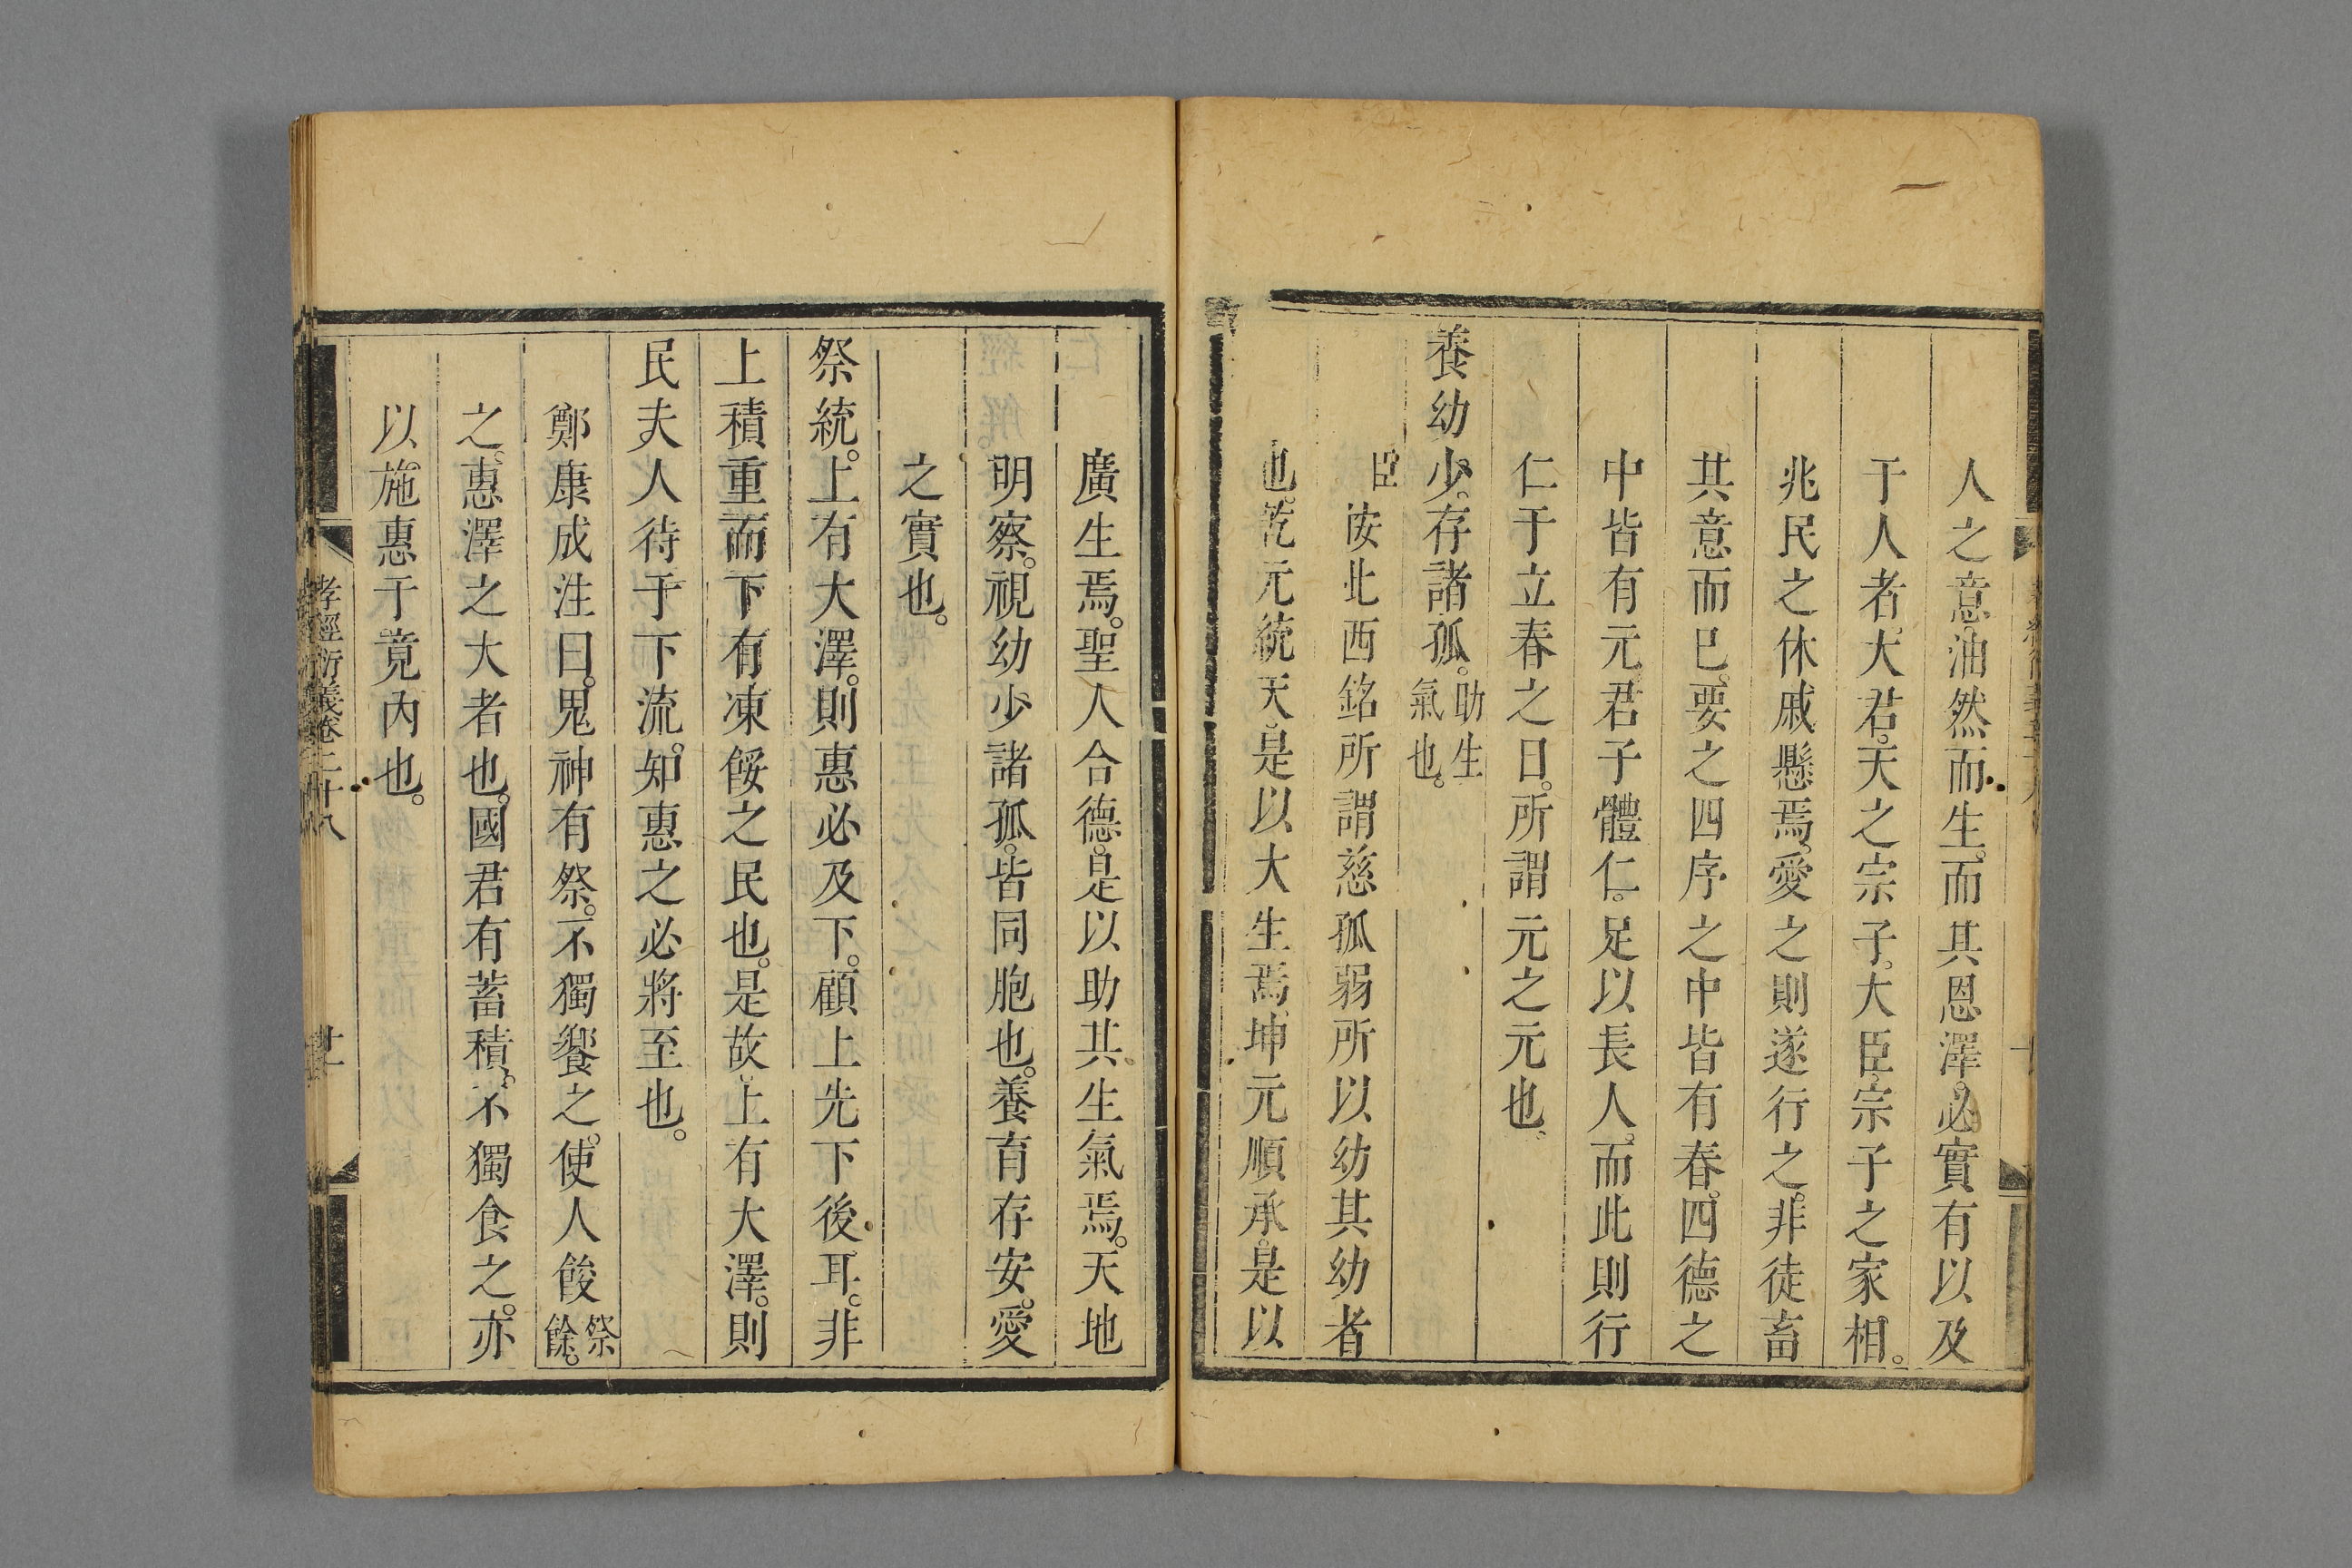 人之意油然而生。而其恩澤。必實有以及
于人者。大君。天之宗子。大臣。宗子之家相。
兆民之休戚懸焉。愛之則遂行之。非徒畜
其意而已。要之四序之中皆有春。四德之
中皆有元。君子體仁。足以長人。而此則行
仁于立春之日。所謂元之元也。
養幼少。存諸孤。助生氣也。
臣按北西銘所謂慈孤弱所以幼其幼者
也。乾元統天。是以大生焉。坤元順承。是以
廣生焉。聖人合德。是以助共生氣焉。天地
明察。視幼少諸孤。皆同胞也。養育存安。愛
之實也。
祭統。上有大澤。則惠必及下。顧上先下後耳。非
上積重而下有凍餒之民也。是故上有大澤。則
民夫人待于下流。知惠之必將至也。
鄭康成注曰。鬼神有祭。不獨饗之。使人餕祭餘。
之。惠澤之大者也。國君有蓄積。不獨食之。亦
以施惠于竟內也。
孝經衍義卷二十八
廿一